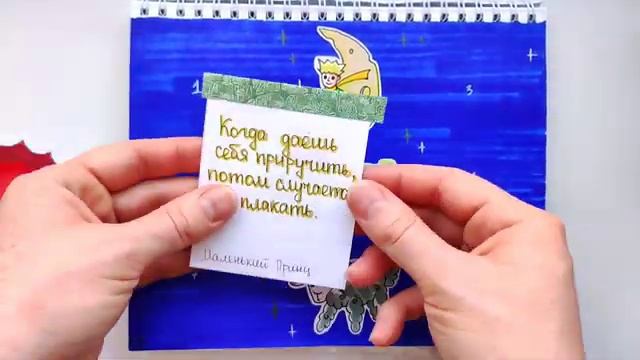 Когда даёшь
себя приручить,
потом случается
плакать.
Маленький Принц